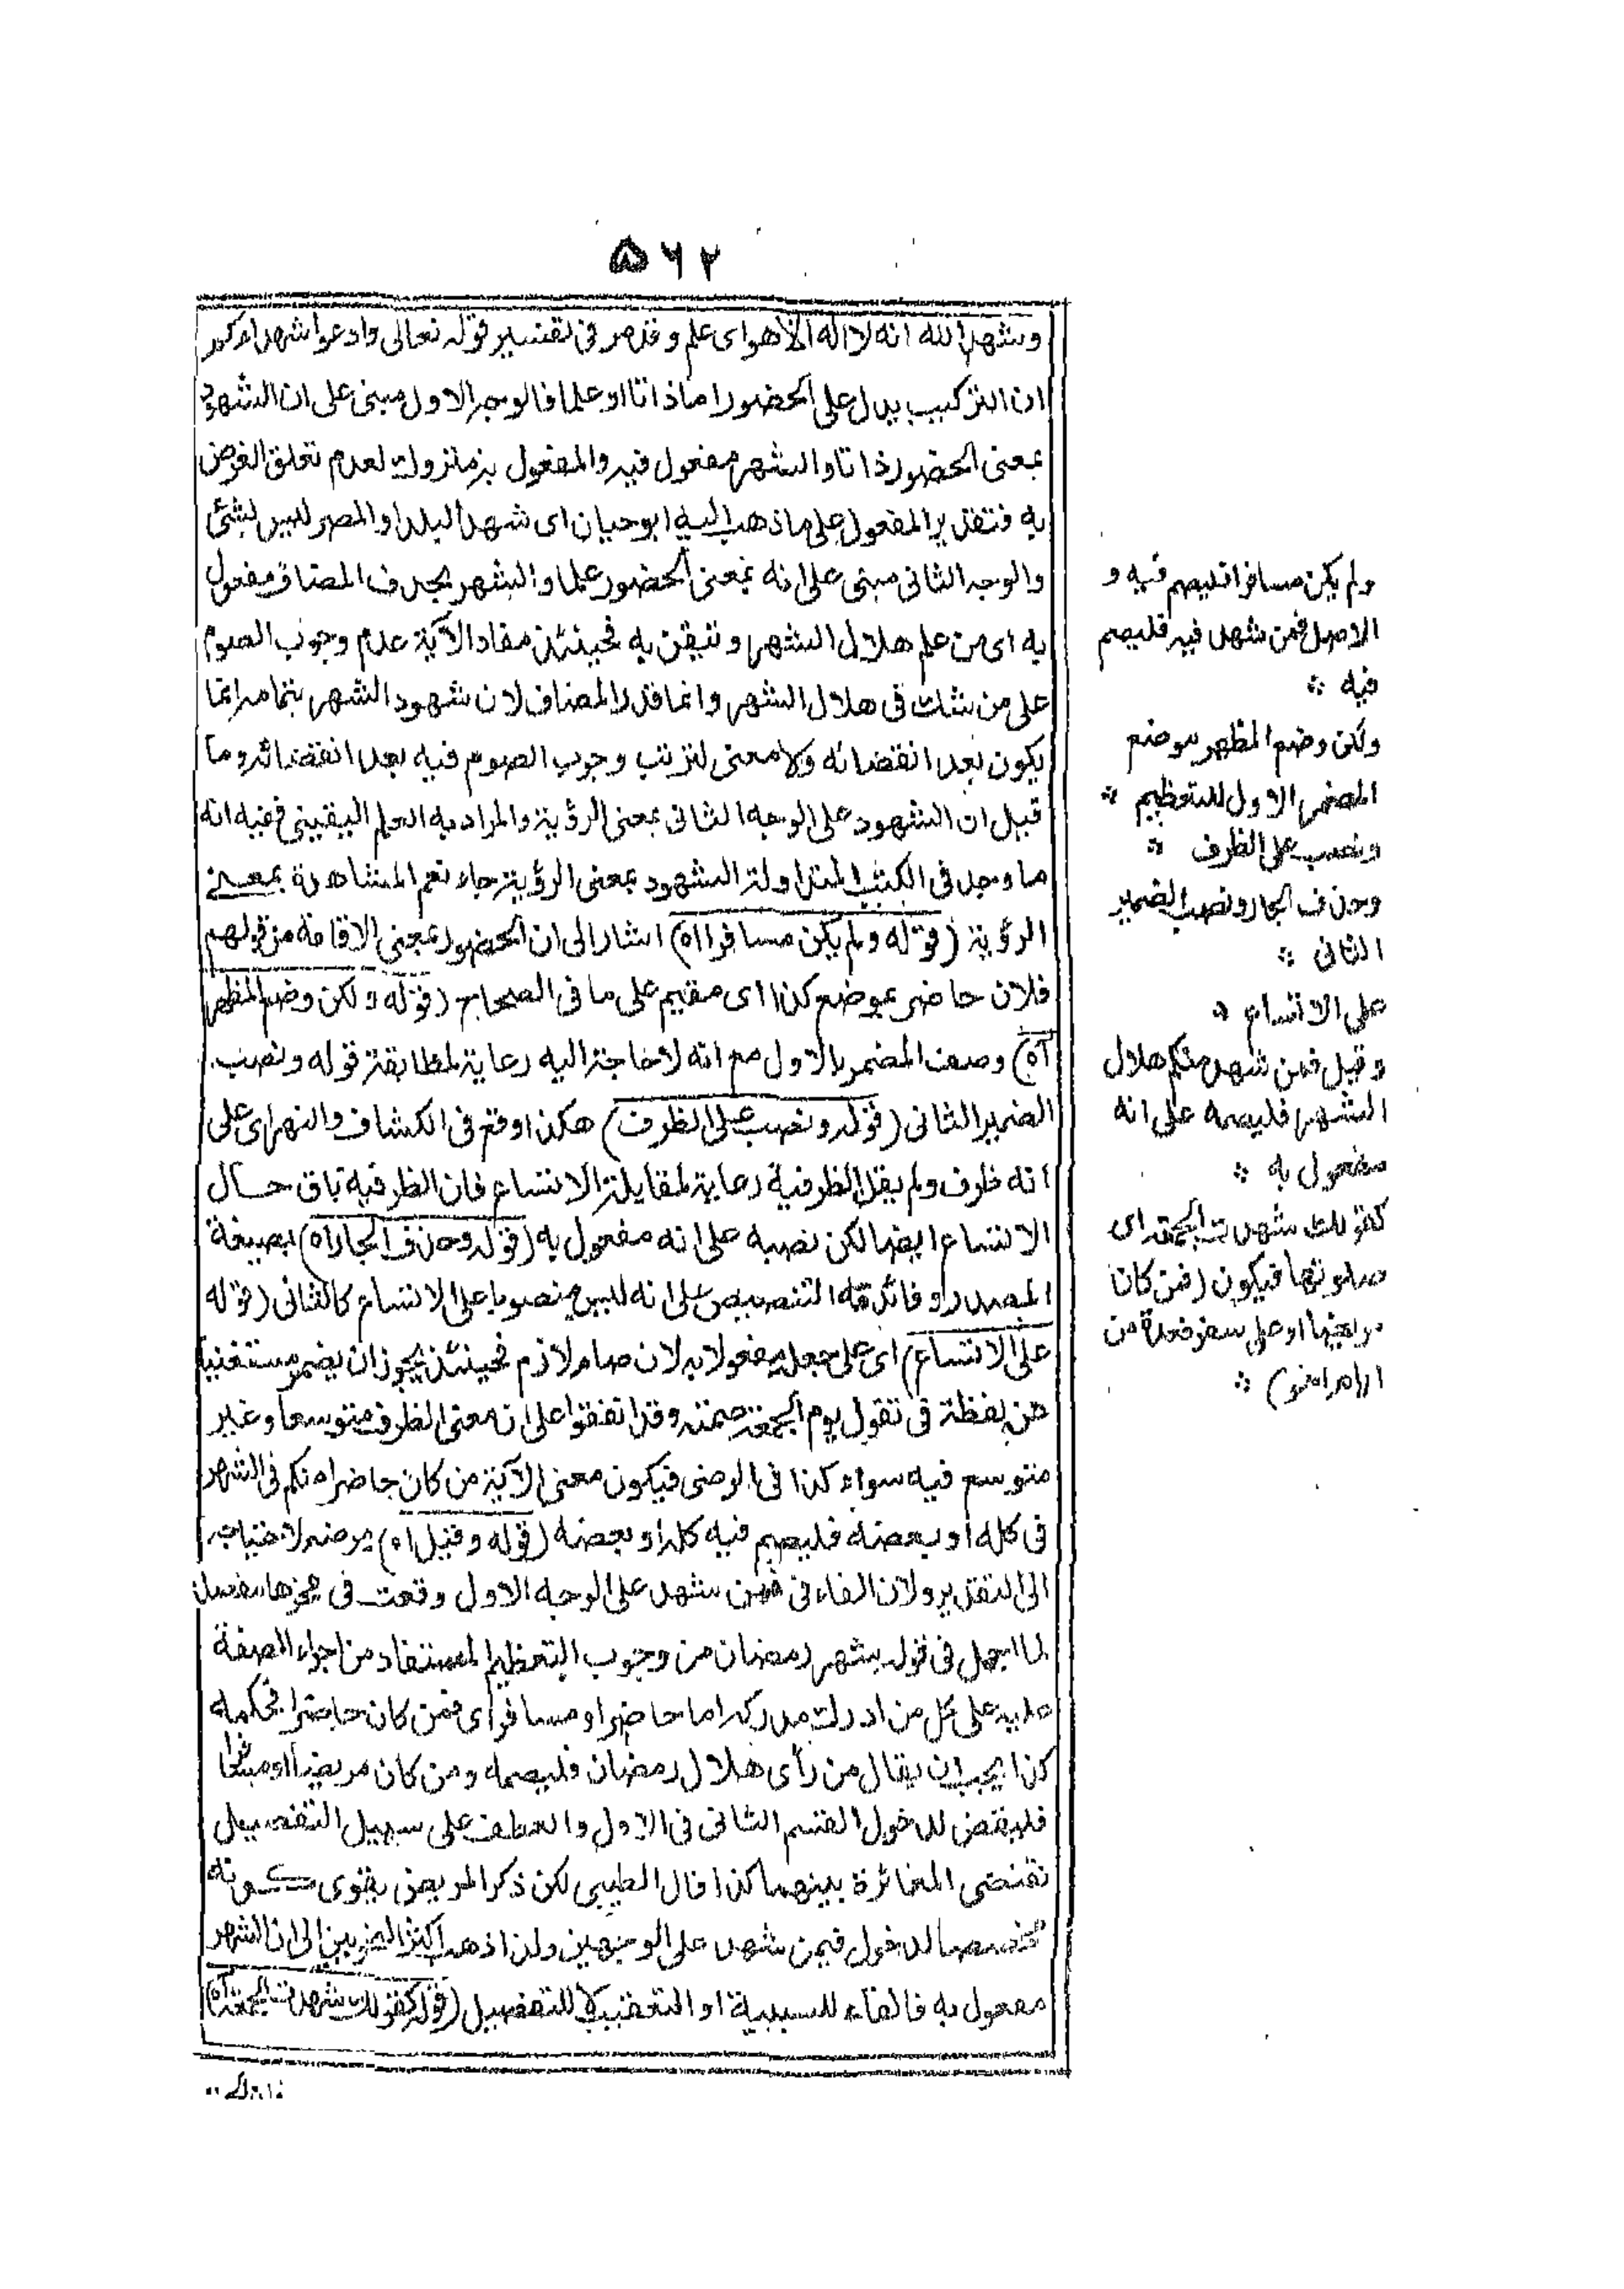 ۵۶۲
وشهد الله انه لا اله الا هو اى علم وقد مر فى تفسير قوله تعالى وادعوا شهداءكم
ان التركيب يدل على الحضور اما ذاتا او علما فالوجه الاول مبنى على ان الشهود
بمعنى الحضور ذاتا والشهر مفعول فيه والمفعول به متروك لعدم تعلق الغرض
به فتقدير المفعول على ما ذهب اليه ابو حيان اى شهد البلد او المصر ليس بشئ
والوجه الثانى مبنى على انه بمعنى الحضور علما والشهر بحذف المضاف مفعول
به اى من علم هلال الشهر وتيقن به فحينئذ مفاد الآية عدم وجوب الصوم
على من شك فى هلال الشهر وانما قدر المضاف لان شهود الشهر بتمامه انما
يكون بعد انقضائه ولا معنى لترتب وجوب الصوم فيه بعد انقضائه وما
قيل ان الشهود على الوجه الثانى بمعنى الرؤية والمراد به العلم اليقينى ففيه انه
ما وجد فى الكتب المتداولة الشهود بمعنى الرؤية جاء نعم المشاهدة بمعنى
الرؤية (قوله ولم يكن مسافرا اه) اشار الى ان الحضور بمعنى الاقامة من قولهم
فلان حاضر بموضع كذا اى مقيم على ما فى الصحاح (قوله ولكن وضع المظهر
آه) وصف المضمر بالاول مع انه لا حاجة اليه رعاية لمطابقة قوله ونصب
الضمير الثانى (قوله ونصب على الظرف) هكذا وقع فى الكشاف والنهر اى على
انه ظرف ولم يقل الظرفية رعاية لمقابلة الاتساع فان الظرفية باق حال
الاتساع ايضا لكن نصبه على انه مفعول به (قوله وحذف الجار اه) بصيغة
المصدر وفائدته التنصيص على انه ليس منصوبا على الاتساع كالثانى (قوله
على الاتساع) اى على جعله مفعولا به لان صام لازم فحينئذ يجوز ان يضمر مستغنيا
عن لفظة فى تقول يوم الجمعة صمته وقد اتفقوا على ان معنى الظرف متوسعا وغير
متوسع فيه سواء كذا فى الرضى فيكون معنى الآية من كان حاضرا منكم فى الشهر
فى كله او بعضه فليصم فيه كله او بعضه (قوله وقيل اه) مرضه لاحتياجه
الى التقدير ولان الفاء فى فمن شهد على الوجه الاول وقعت فى محزها مفصلة
لما اجمل فى قوله شهر رمضان من وجوب التعظيم المستفاد من اجراء الصفة
عليه على كل من ادرك مدركه اما حاضر او مسافر اى فمن كان حاضرا فحكمه
كذا يجب ان يقال من رأى هلال رمضان فليصمه ومن كان مريضا او مسافرا
فليقض لدخول القسم الثانى فى الاول والعطف على سبيل التفصيل
تقتضى المغائرة بينهما كذا قال الطيبى لكن ذكر المريض يقوى كونه
مخصصا لدخوله فيمن شهد على الوجهين ولذا ذهب اكثر النحويين الى ان الشهر
مفعول به فالفاء للسببية او التعقيب لا للتفصيل (قوله كقولك شهدت الجمعة آه)
ولم يكن مسافرا فليصم فيه و
الاصل فمن شهد فيه فليصم
فيه
ولكن وضع المظهر موضع
المضمر الاول للتعظيم
ونصب على الظرف
وحذف الجار ونصب الضمير
الثانى
على الاتساع
وقيل فمن شهد منكم هلال
الشهر فليصمه على انه
مفعول به
كقولك شهدت الجمعة اى
صلوتها فيكون (فمن كان
مريضا او على سفر فعدة من
ايام اخر)